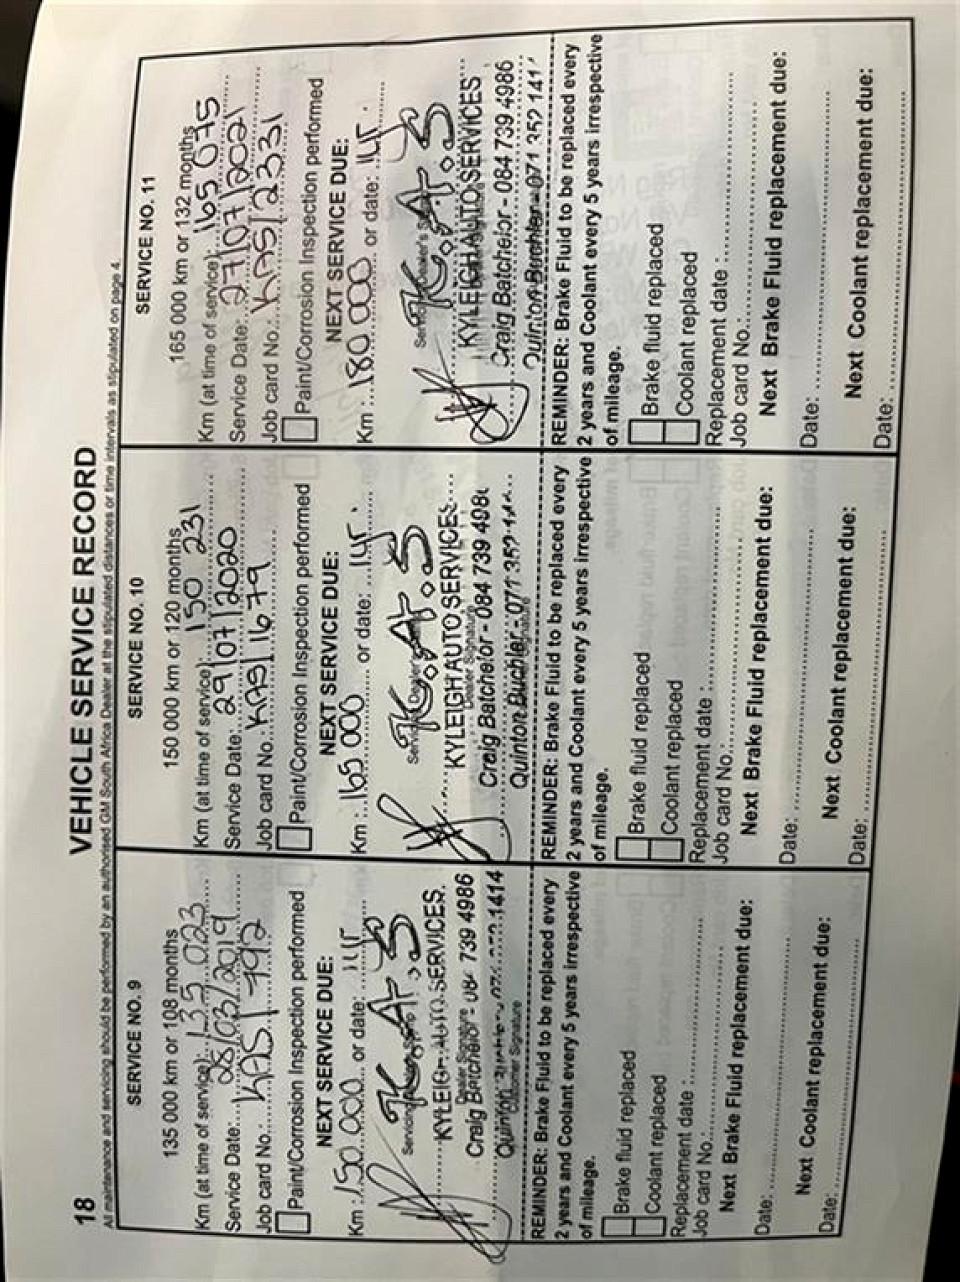 18
VEHICLE SERVICE RECORD
All maintenance and servicing should be performed by an authorised GM South Africa Dealer at the stipulated distances or time intervals as stipulated on page 4.
SERVICE NO. 9
135 000 km or 108 months
Km (at time of service): 135 023
Service Date: 28/03/2019
Job card No.: KAS/792
Paint/Corrosion Inspection performed
NEXT SERVICE DUE:
Km : 150 000 or date: 1yr
K.A.S
KYLEIGH AUTO SERVICES.
Dealer Signature
Craig Batchelor - 084 739 4986
Quinton 1414
Customer Signature
REMINDER: Brake Fluid to be replaced every
2 years and Coolant every 5 years irrespective
of mileage.
Brake fluid replaced
Coolant replaced
Replacement date :
Job card No.:
Next Brake Fluid replacement due:
Date:
Next Coolant replacement due:
Date:
SERVICE NO. 10
150 000 km or 120 months
Km (at time of service): 150 231
Service Date: 29/07/2020
Job card No.: KAS/1679
Paint/Corrosion Inspection performed
NEXT SERVICE DUE:
Km : 165 000 or date: 1yr.
K.A.S
Servicing Dealer's
KYLEIGH AUTO SERVICES
Dealer Signature
Craig Batchelor - 084 739 498
Quinton Buchler - 071 352 141
Signature
REMINDER: Brake Fluid to be replaced every
2 years and Coolant every 5 years irrespective
of mileage.
Brake fluid replaced
Coolant replaced
Replacement date :
Job card No.:
Next Brake Fluid replacement due:
Date:
Next Coolant replacement due:
Date:
SERVICE NO. 11
165 000 km or 132 months
Km (at time of service): 165 075
Service Date: 27/07/2021
Job card No.: KAS/2331
Paint/Corrosion Inspection performed
NEXT SERVICE DUE:
Km : 180 000 or date: 1yr.
K.A.S
Dealer's
KYLEIGH AUTO SERVICES
Craig Batchelor - 084 739 4986
Quinton Buchler - 071 352 141
REMINDER: Brake Fluid to be replaced every
2 years and Coolant every 5 years irrespective
of mileage.
Brake fluid replaced
Coolant replaced
Replacement date :
Job card No.:
Next Brake Fluid replacement due:
Date:
Next Coolant replacement due:
Date: